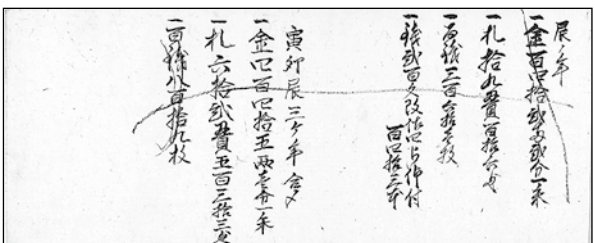 辰ノ年
一金百四拾弐両弐分一朱
一札拾九貫百拾六匁
一百銭三百六拾壱枚
一銭弐百
百四拾三本
寅卯辰三ヶ年合〆
一金四百四拾五両壱分一朱
一札六拾弐貫五百三拾三匁
一百銭八百拾九枚